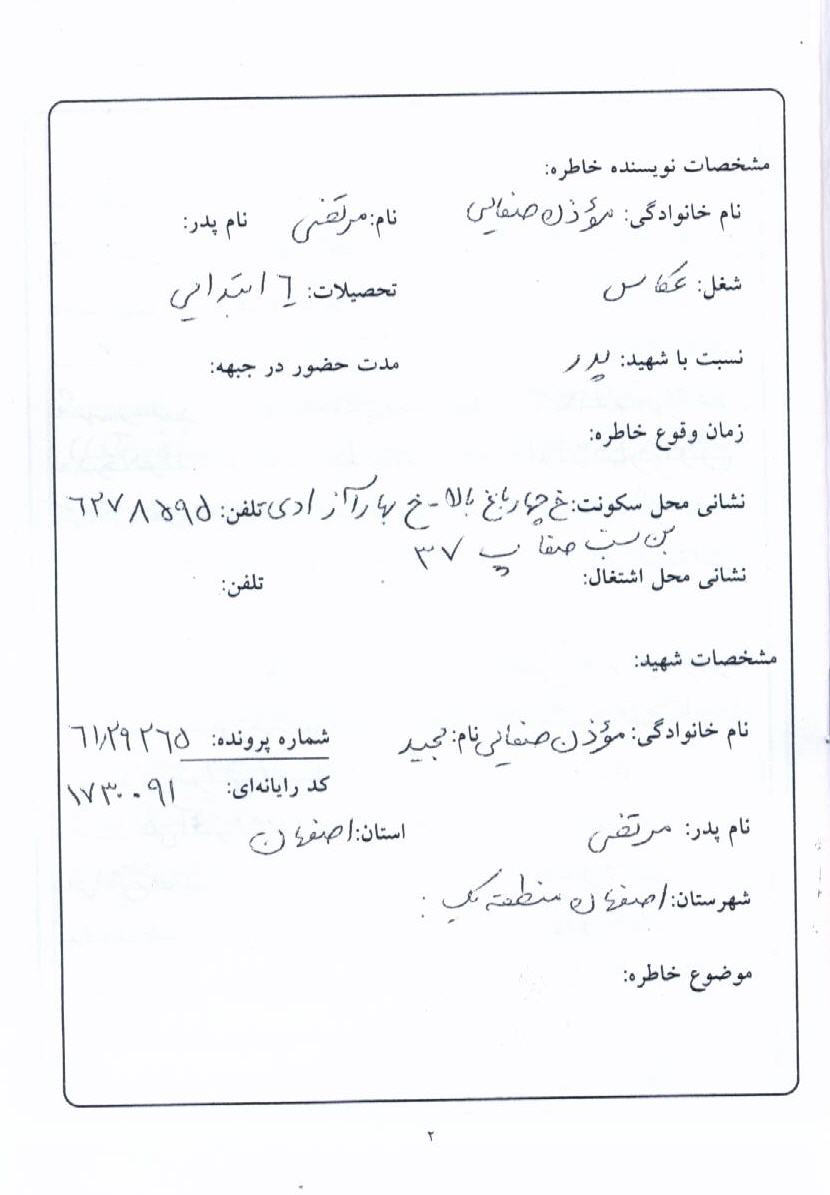 مشخصات نویسنده خاطره:
نام خانوادگی: مؤذن صفائی نام: مرتضی نام پدر:
شغل: عکاس تحصیلات: ٦ ابتدایی
نسبت با شهید: پدر مدت حضور در جبهه:
زمان وقوع خاطره:
نشانی محل سکونت: خ چهارباغ بالا - خ بهارآزادی تلفن: ٦٢٧٨٥٩٥
بن بست صفا پ ٣٧
نشانی محل اشتغال: تلفن:
مشخصات شهید:
نام خانوادگی: مؤذن صفائی نام: مجید شماره پرونده: ٦١/٢٩٢٦٥
کد رایانه‌ای: ١٧٣٠٠٩١
نام پدر: مرتضی استان: اصفهان
شهرستان: اصفهان منطقه یک
موضوع خاطره:
٢